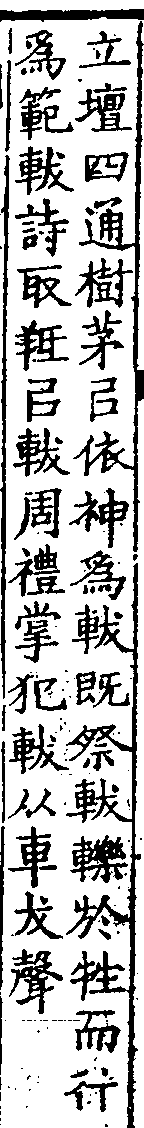 立壇四通樹茅㠯依神爲軷既祭軷轢於牲而行
爲範軷詩取羝㠯軷周禮掌犯軷从車犮聲